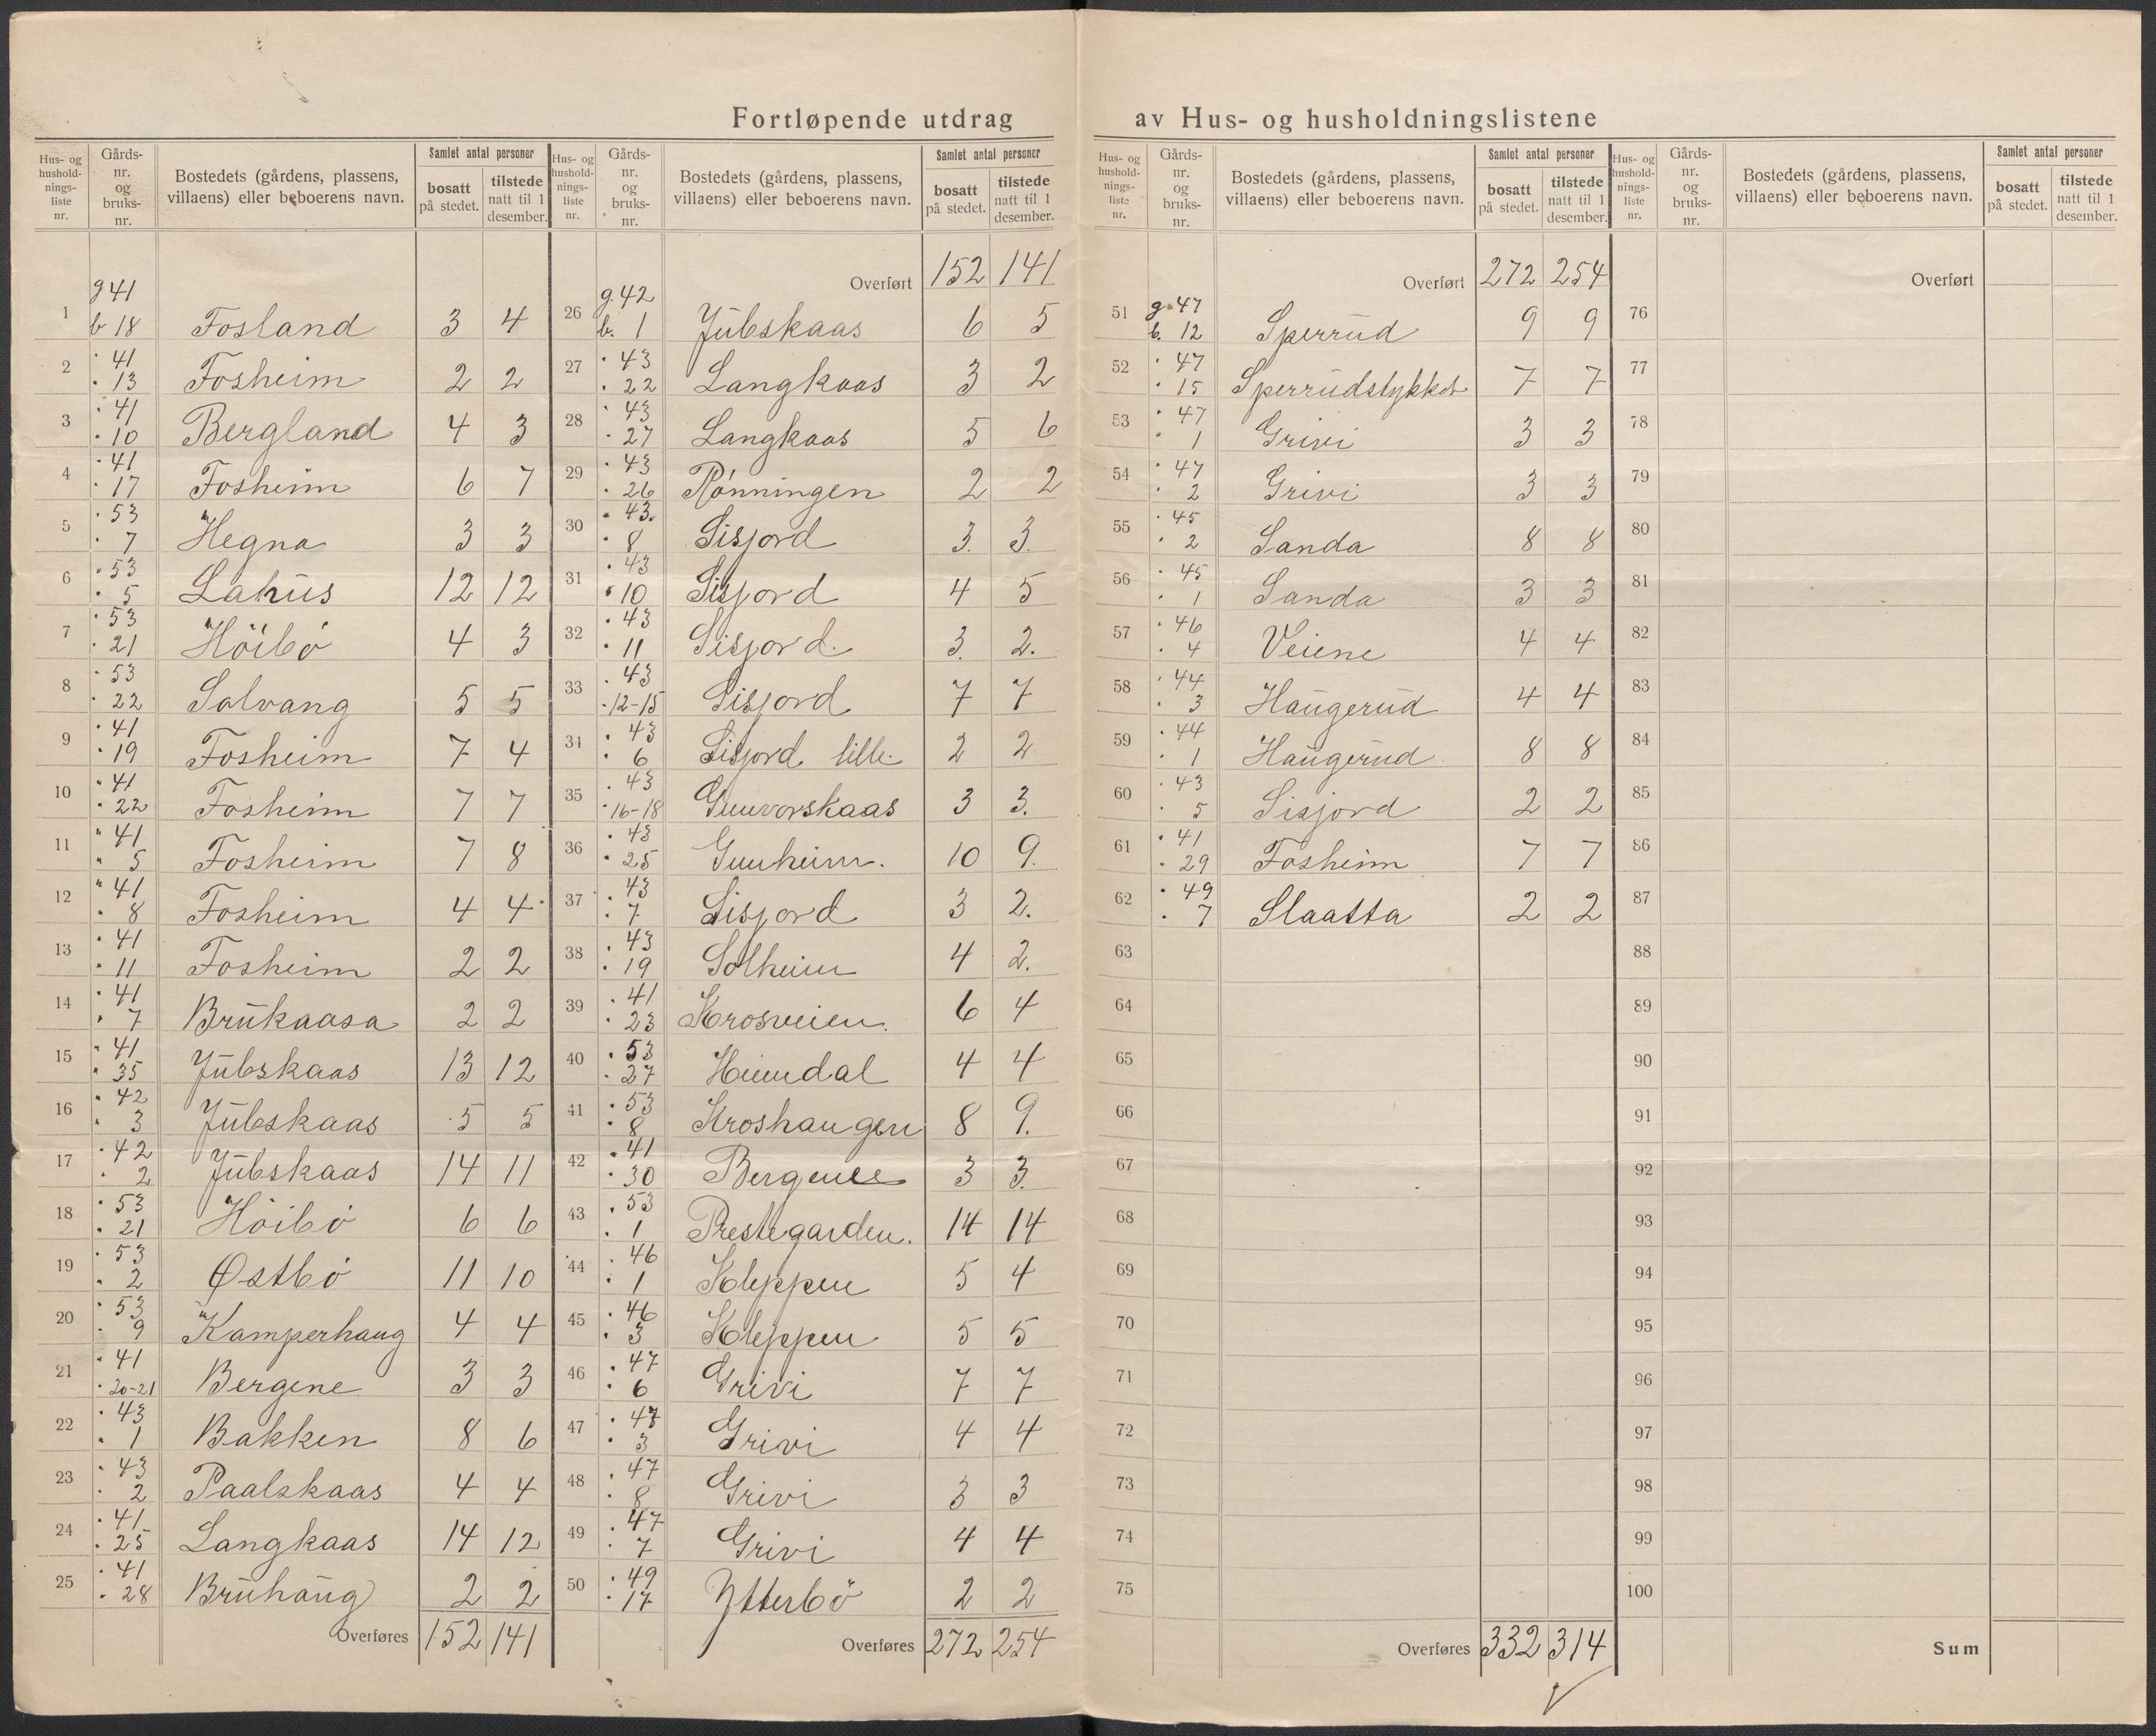 Fortløpende utdrag av Hus- og husholdningslistene
Hus- og husholdnings-liste nr. | Gårds-nr. og bruks-nr. | Bostedets (gårdens, plassens, villaens) eller beboerens navn. | Samlet antal personer | bosatt på stedet. | tilstede natt til 1 desember.
1 | g 41 b 18 | Fosland | 3 | 4
2 | " 41 " 13 | Fosheim | 2 | 2
3 | " 41 " 10 | Bergland | 4 | 3
4 | " 41 " 17 | Fosheim | 6 | 7
5 | " 53 " 7 | Hegna | 3 | 3
6 | " 53 " 5 | Lahus | 12 | 12
7 | " 53 " 21 | Höibö | 4 | 3
8 | " 53 " 22 | Solvang | 5 | 5
9 | " 41 " 19 | Fosheim | 7 | 4
10 | " 41 " 22 | Fosheim | 7 | 7
11 | " 41 " 5 | Fosheim | 7 | 8
12 | " 41 " 8 | Fosheim | 4 | 4
13 | " 41 " 11 | Fosheim | 2 | 2
14 | " 41 " 7 | Brukaasa | 2 | 2
15 | " 41 " 35 | Jubskaas | 13 | 12
16 | " 42 " 3 | Jubskaas | 5 | 5
17 | " 42 " 2 | Jubskaas | 14 | 11
18 | " 53 " 21 | Höibö | 6 | 6
19 | " 53 " 2 | Østbö | 11 | 10
20 | " 53 " 9 | Kamperhaug | 4 | 4
21 | " 41 " 20-21 | Bergene | 3 | 3
22 | " 43 " 1 | Bakken | 8 | 6
23 | " 43 " 2 | Paalskaas | 4 | 4
24 | " 41 " 25 | Langkaas | 14 | 12
25 | " 41 " 28 | Bruhaug | 2 | 2
Overføres | 152 | 141
Hus- og husholdnings-liste nr. | Gårds-nr. og bruks-nr. | Bostedets (gårdens, plassens, villaens) eller beboerens navn. | Samlet antal personer | bosatt på stedet. | tilstede natt til 1 desember.
Overført | 152 | 141
26 | g. 42 b. 1 | Jubskaas | 6 | 5
27 | " 43 " 22 | Langkaas | 3 | 2
28 | " 43 " 27 | Langkaas | 5 | 6
29 | " 43 " 26 | Rönningen | 2 | 2
30 | " 43. " 8 | Sisjord | 3. | 3.
31 | " 43 " 10 | Sisjord | 4 | 5
32 | " 43 " 11 | Sisjord. | 3. | 2.
33 | " 43 " 12-15 | Sisjord | 7 | 7
34 | " 43 " 6 | Sisjord lille. | 2 | 2
35 | " 43 " 16-18 | Gunvorskaas | 3 | 3.
36 | " 43 " 25 | Gunheim. | 10 | 9.
37 | " 43 " 7 | Sisjord | 3 | 2.
38 | " 43 " 19 | Solheim | 4 | 2.
39 | " 41 " 23 | Krosveien. | 6 | 4
40 | " 53 " 27 | Heimdal | 4 | 4
41 | " 53 " 8 | Kroshaugen | 8 | 9.
42 | " 41 " 30 | Bergene | 3 | 3.
43 | " 53 " 1 | Prestegarden. | 14 | 14
44 | " 46 " 1 | Kleppen | 5 | 4
45 | " 46 " 3 | Kleppen | 5 | 5
46 | " 47 " 6 | Grivi | 7 | 7
47 | " 47 " 3 | Grivi | 4 | 4
48 | " 47 " 8 | Grivi | 3 | 3
49 | " 47 " 7 | Grivi | 4 | 4
50 | " 49 " 17 | Ytterbö | 2 | 2
Overføres | 272 | 254
Hus- og husholdnings-liste nr. | Gårds-nr. og bruks-nr. | Bostedets (gårdens, plassens, villaens) eller beboerens navn. | Samlet antal personer | bosatt på stedet. | tilstede natt til 1 desember.
Overført | 272 | 254
51 | g. 47 b. 12 | Sperrud | 9 | 9
52 | " 47 " 15 | Sperrudstykket | 7 | 7
53 | " 47 " 1 | Grivi | 3 | 3
54 | " 47 " 2 | Grivi | 3 | 3
55 | " 45 " 2 | Sanda | 8 | 8
56 | " 45 " 1 | Sanda | 3 | 3
57 | " 46 " 4 | Veiene | 4 | 4
58 | " 44 " 3 | Haugerud | 4 | 4
59 | " 44 " 1 | Haugerud | 8 | 8
60 | " 43 " 5 | Sisjord | 2 | 2
61 | " 41 " 29 | Fosheim | 7 | 7
62 | " 49 " 7 | Slaatta | 2 | 2
63
64
65
66
67
68
69
70
71
72
73
74
75
Overføres | 332 | 314
Hus- og husholdnings-liste nr. | Gårds-nr. og bruks-nr. | Bostedets (gårdens, plassens, villaens) eller beboerens navn. | Samlet antal personer | bosatt på stedet. | tilstede natt til 1 desember.
Overført
76
77
78
79
80
81
82
83
84
85
86
87
88
89
90
91
92
93
94
95
96
97
98
99
100
Sum